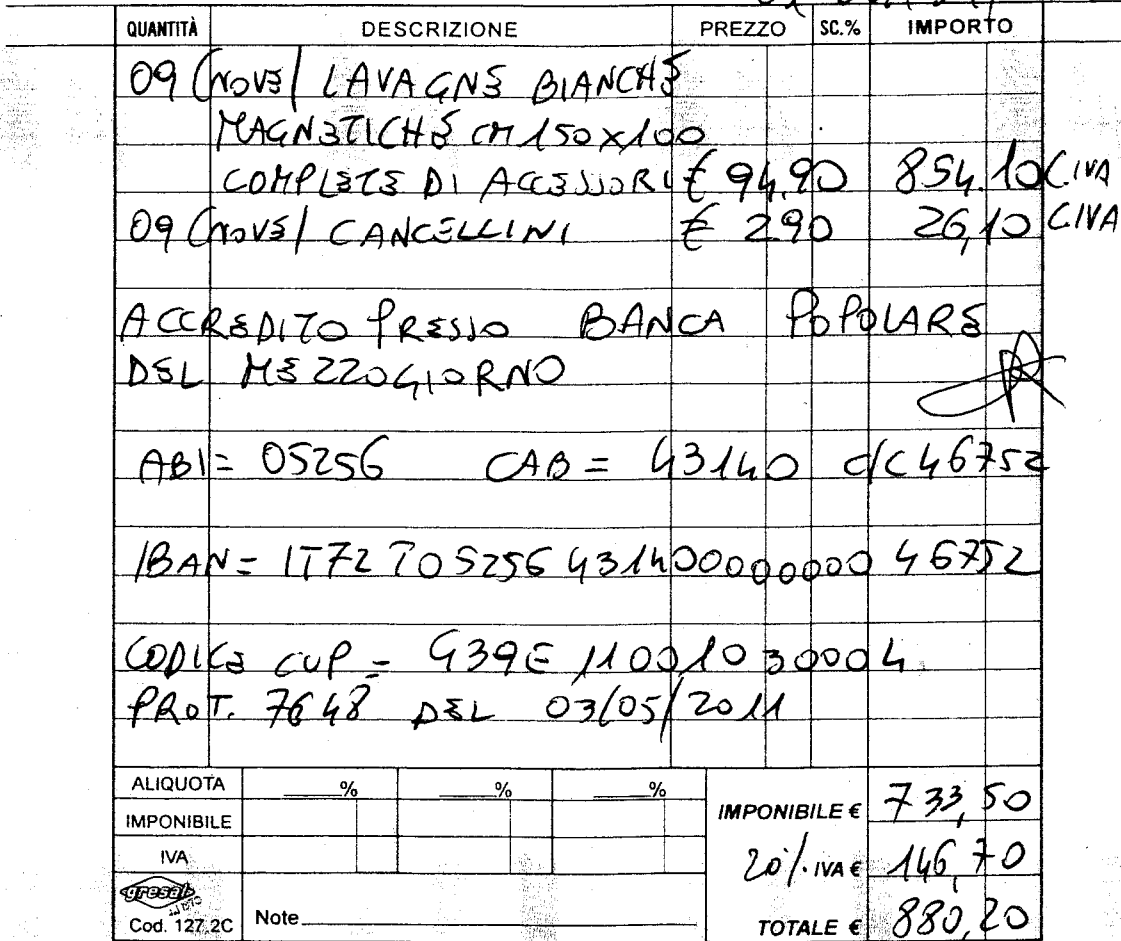 QUANTITÀ DESCRIZIONE PREZZO SC.% IMPORTO
09 (NOVE) LAVAGNE BIANCHE
MAGNETICHE CM 150X100
COMPLETE DI ACCESSORI € 94,90 854.10 C.IVA
09 (NOVE) CANCELLINI € 2.90 26,10 C.IVA
ACCREDITO PRESSO BANCA POPOLARE
DEL MEZZOGIORNO
ABI= 05256 CAB = 43140 C/C 46752
IBAN= IT72 T05256 43140000000046752
CODICE CUP = G39E11001030004
PROT. 7648 DEL 03/05/2011
ALIQUOTA % % %
IMPONIBILE IMPONIBILE € 733,50
IVA 20%. IVA € 146,70
gresal
Cod. 127.2C Note TOTALE € 880,20